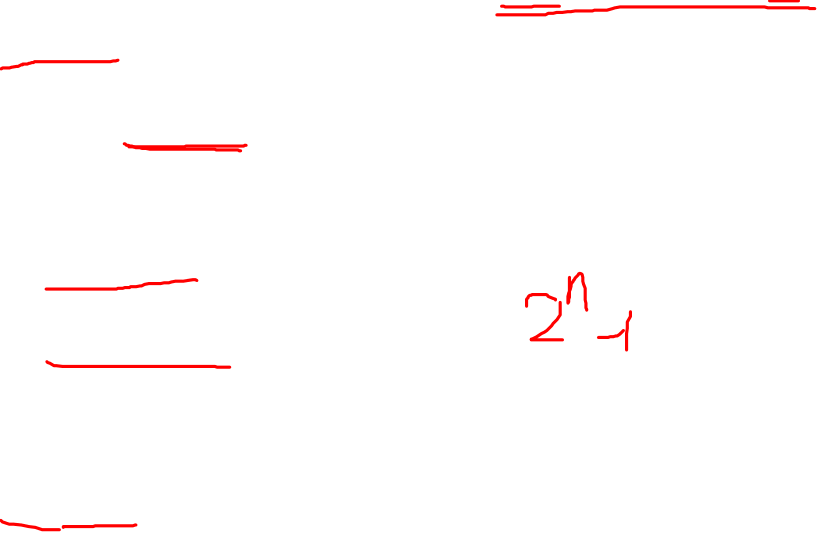 2ⁿ-1